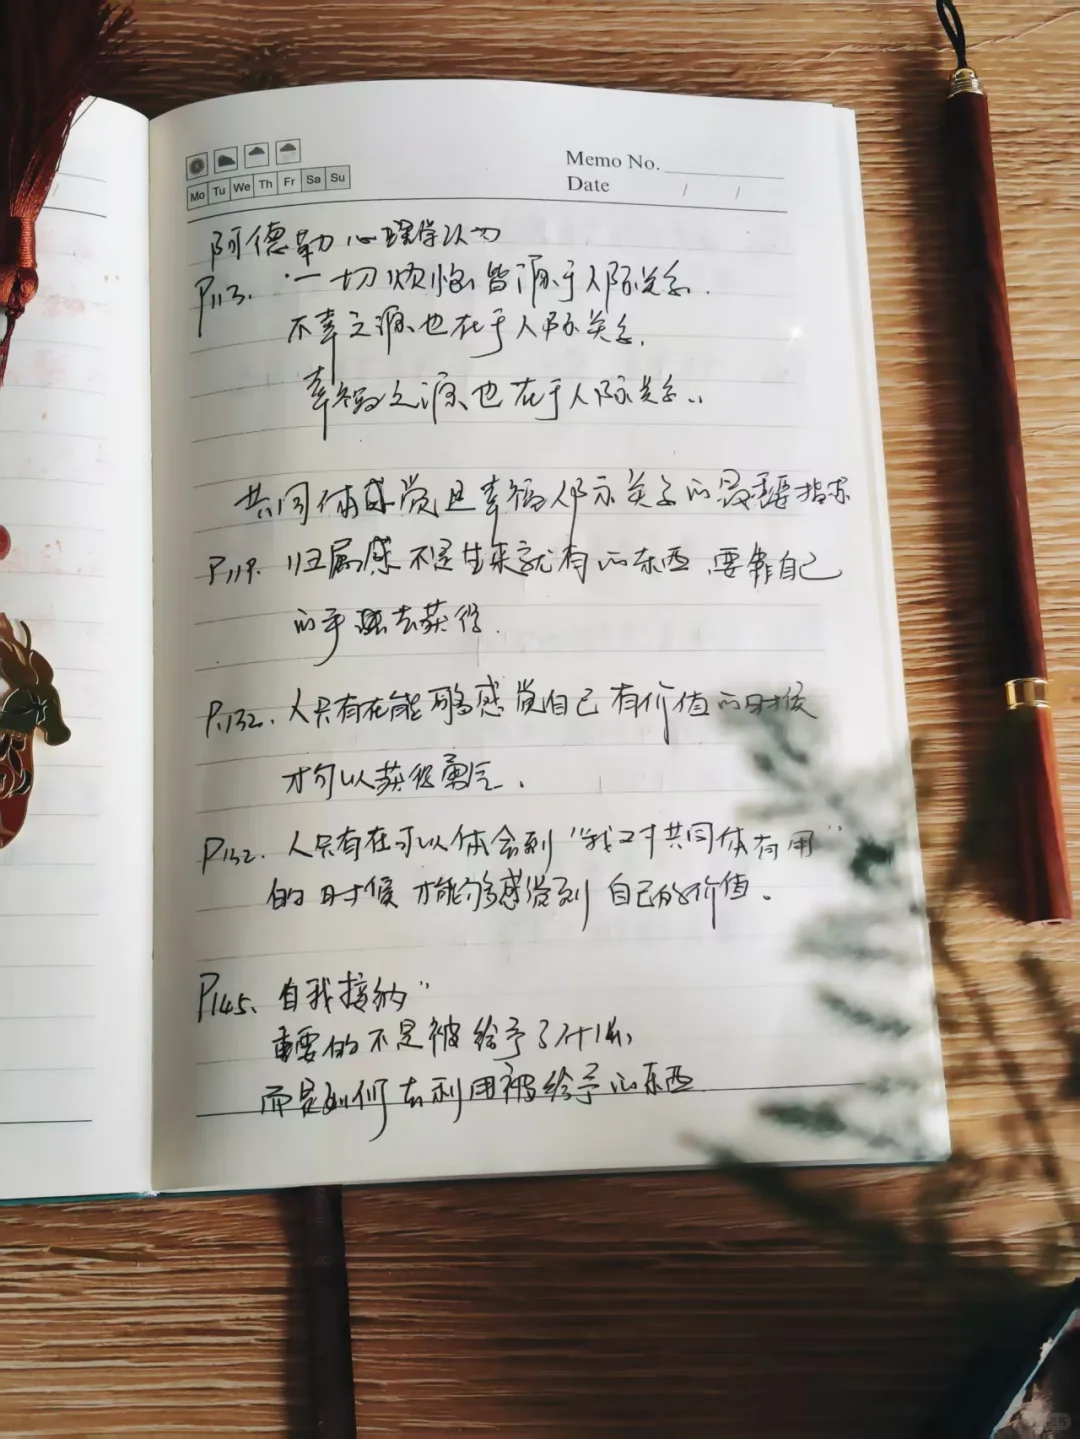 Memo No.
Mo Tu We Th Fr Sa Su
Date / /
阿德勒心理学认为
P113. "一切烦恼皆源于人际关系.
不幸之源也在于人际关系.
幸福之源也在于人际关系."
共同体感觉是幸福人际关系的最重要指标
P119. 归属感不是生来就有的东西,要靠自己
的手去获得.
P.132. 人只有在能够感觉自己有价值的时候
才可以获得勇气.
P132. 人只有在可以体会到"我对共同体有用"
的时候才能够感觉到自己的价值。
P145、自我接纳"
重要的不是被给予了什么,
而是如何去利用被给予的东西